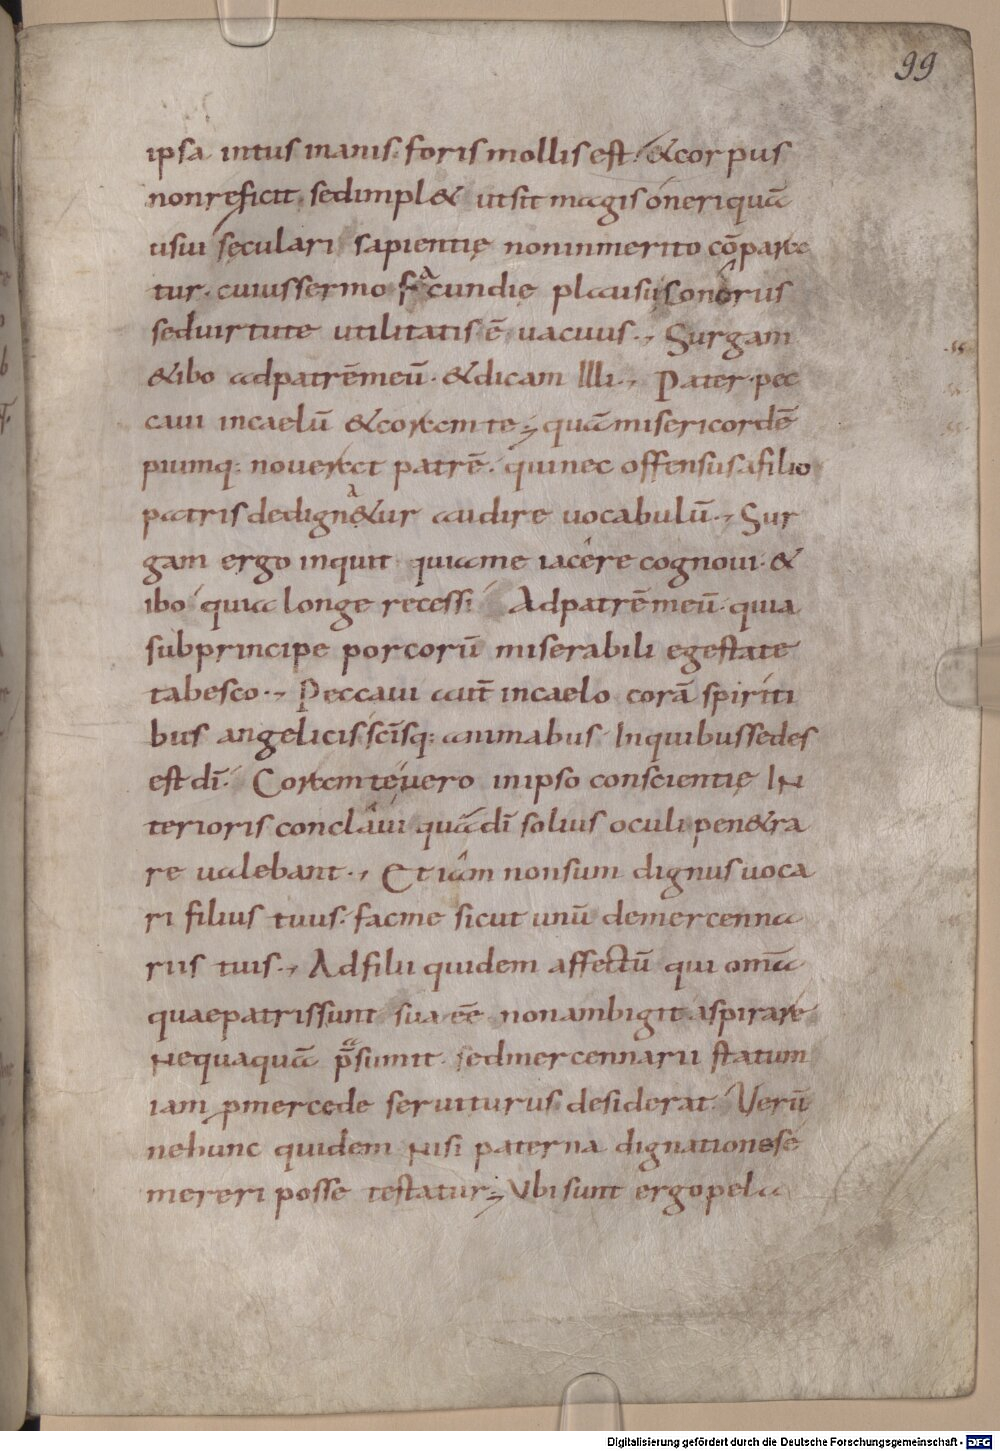 99
ipsa intus inanis. foris mollis est. & corpus
non reficit. sed impl& ut sit magis oneri quā
usui sęculari sapientię non inmerito cōpara
tur. cuius sermo facundię plausu sonorus
sed uirtute utilitatis ē uacuus., Surgam
& ibo ad patrē meū. & dicam Illi., Pater pec
caui in caelū & coram te., quā misericordē
piumq: nouerat patrē. qui nec offensus a filio
patris dedignaetur audire uocabulū., Sur
gam ergo inquit quia me iacere cognoui. &
ibo quia longe recessi Ad patrē meū. quia
sub principe porcorū miserabili egestate
tabesco., Peccaui aut̄ in caelo corā spiriti
bus angelicis sc̄isq: animabus In quibus sedes
est dī. Coram te uero in ipso conscientię IN
terioris conclaui quā dī solius oculi pen&ra
re ualebant., Et iam non sum dignus uoca
ri filius tuus. fac me sicut unū de mercenna
riis tuis., Ad filii quidem affectū qui om̄a
quae patris sunt sua eē non ambigit aspirare
Nequaquā p̄sumit. sed mercennarii statum
iam p mercede seruiturus desiderat. Verū
ne hunc quidem Nisi paterna dignatione se
mereri posse testatur., Vbi sunt ergo pela
Digitalisierung gefördert durch die Deutsche Forschungsgemeinschaft - DFG